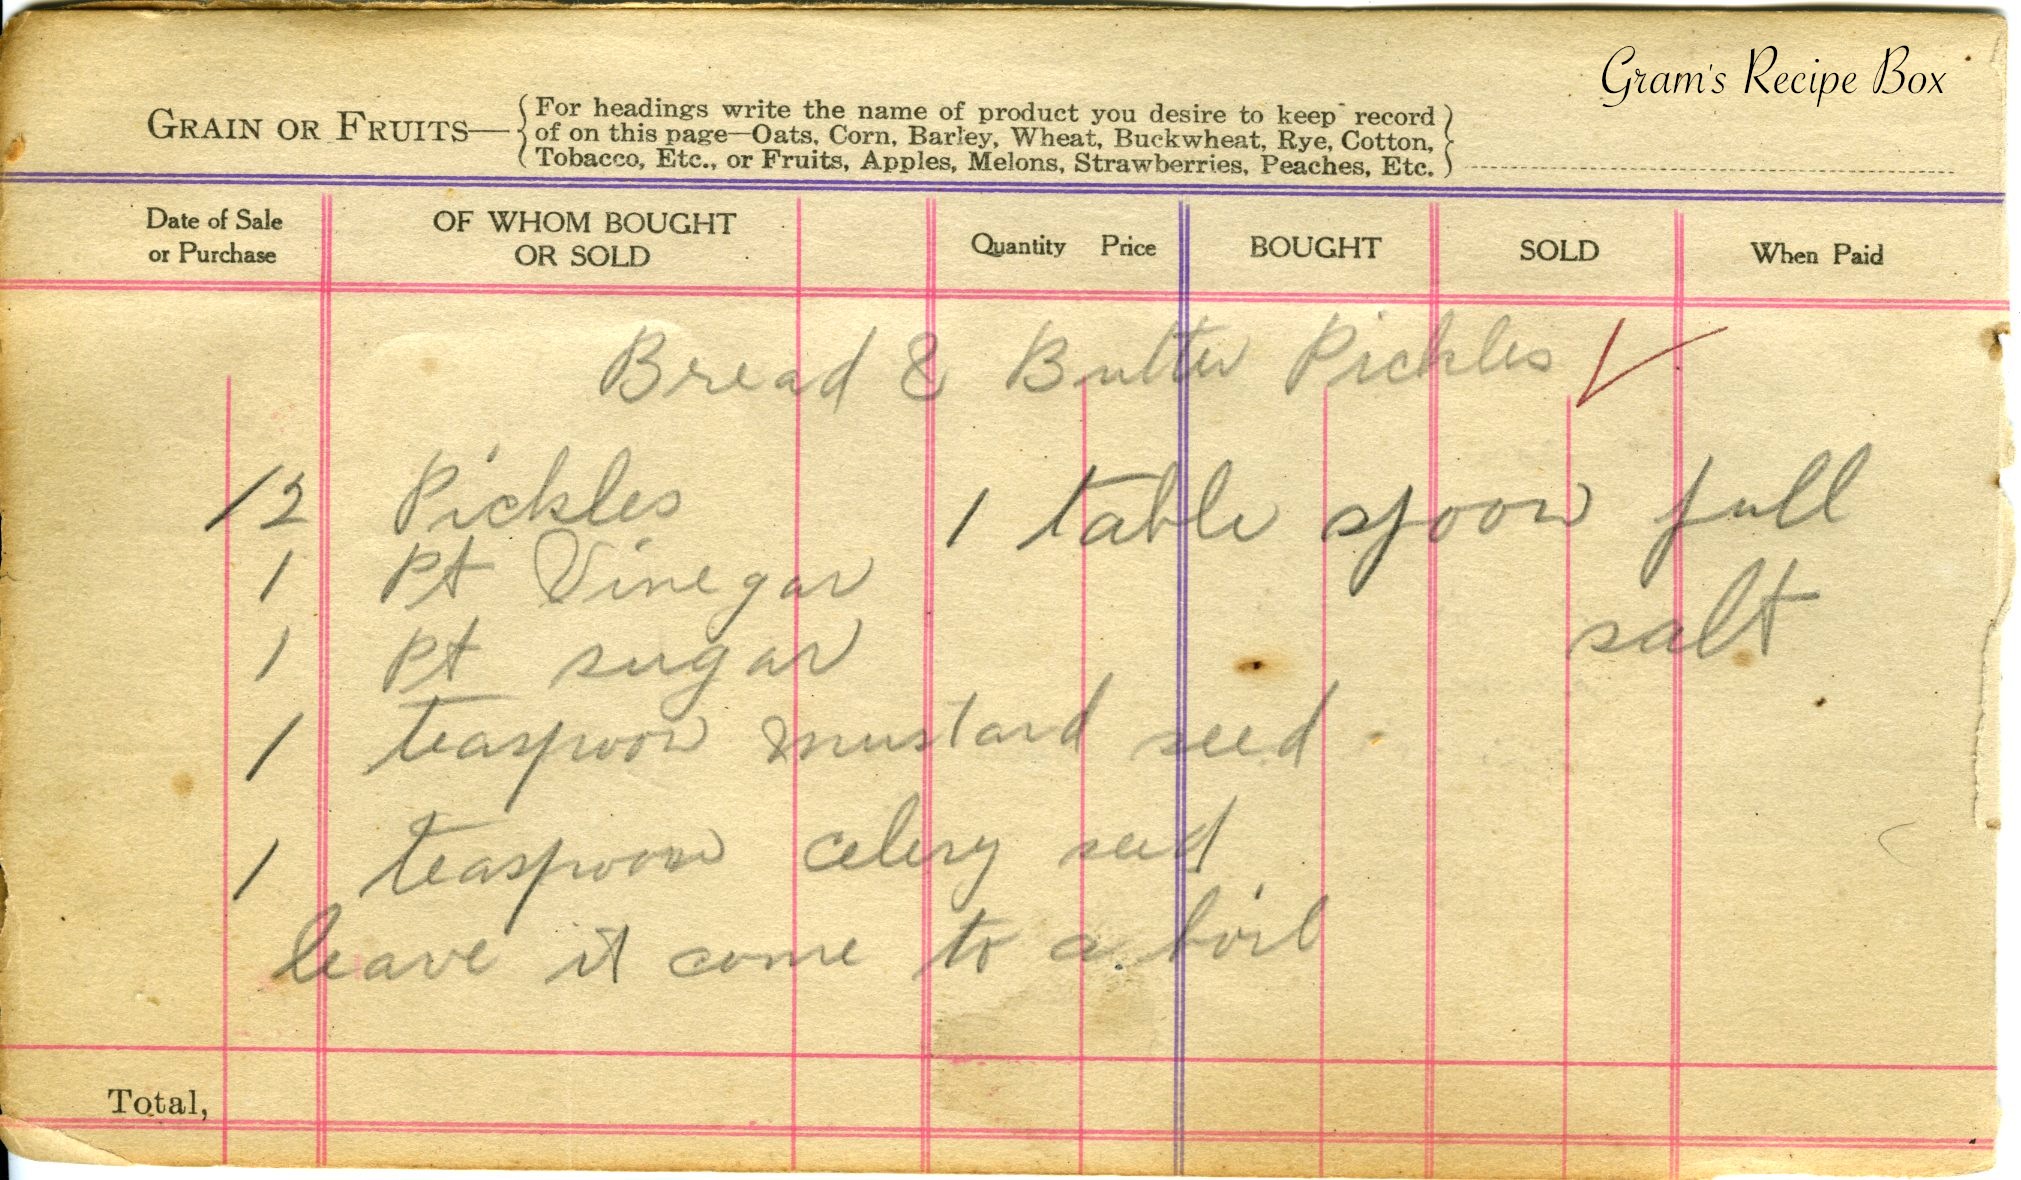 Gram's Recipe Box
GRAIN OR FRUITS—
For headings write the name of product you desire to keep record
of on this page—Oats, Corn, Barley, Wheat, Buckwheat, Rye, Cotton,
Tobacco, Etc., or Fruits, Apples, Melons, Strawberries, Peaches, Etc.
Date of Sale
or Purchase
OF WHOM BOUGHT
OR SOLD
Quantity Price
BOUGHT
SOLD
When Paid
Bread & Butter Pickles
12 Pickles
1 table spoon full
salt
1 pt Vinegar
1 pt sugar
1 teaspoon mustard seed
1 teaspoon celery seed
leave it come to a boil
Total,